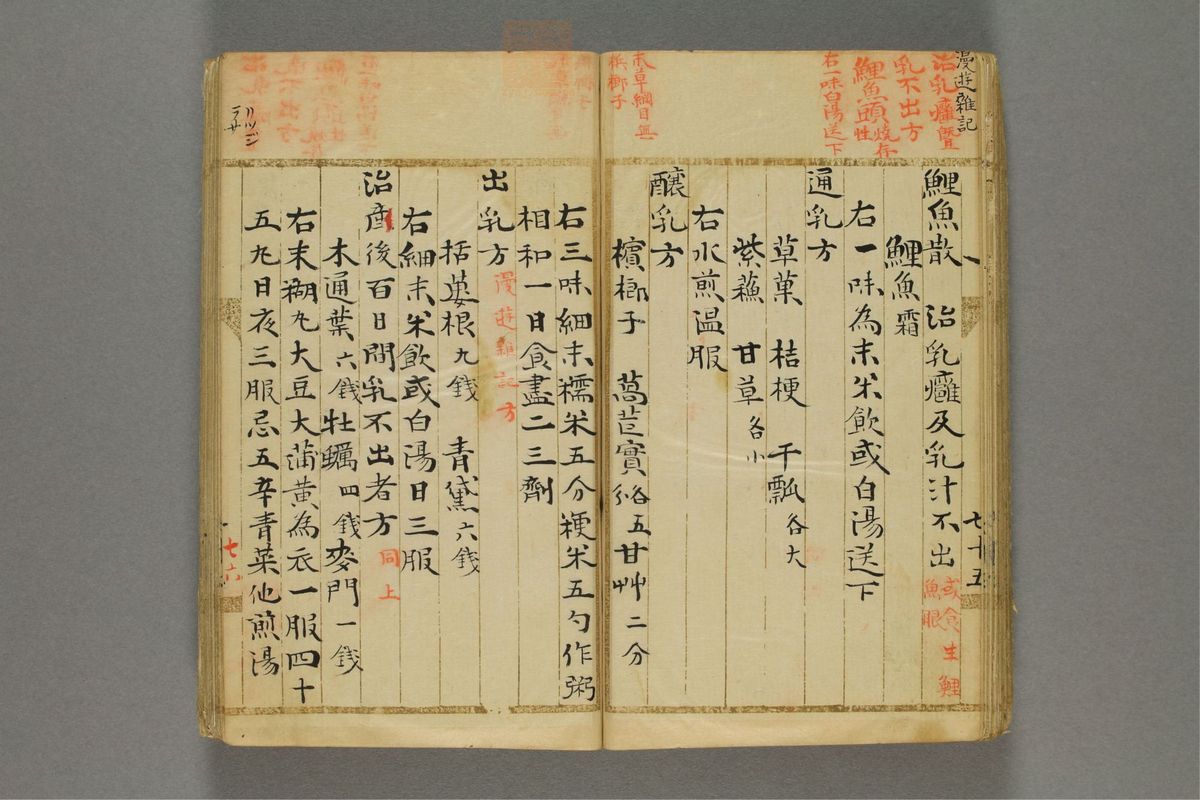 漫遊雜記
治乳癰暨
乳不出方
鯉魚頭燒存性
右一味白湯送下
鯉魚散 治乳癰及乳汁不出
或食生鯉
魚眼
鯉魚霜
右一味為末米飲或白湯送下
通乳方
草菓 桔梗 干瓢各大
紫蘓 甘草各小
右水煎温服
釀乳方
檳榔子 萵苣實各五 甘艸二分
本草綱目無
檳榔子
七十五
右三味細末糯米五分粳米五勺作粥
相和一日食盡二三劑
出乳方 漫遊雜記方
栝蔞根九錢 青黛六錢
右細末米飲或白湯日三服
治產後百日間乳不出者方 同上
木通葉六錢 牡蠣四錢 麥門一錢
右末糊丸大豆大蒲黄為衣一服四十
五丸日夜三服忌五辛青菜他煎湯
七六